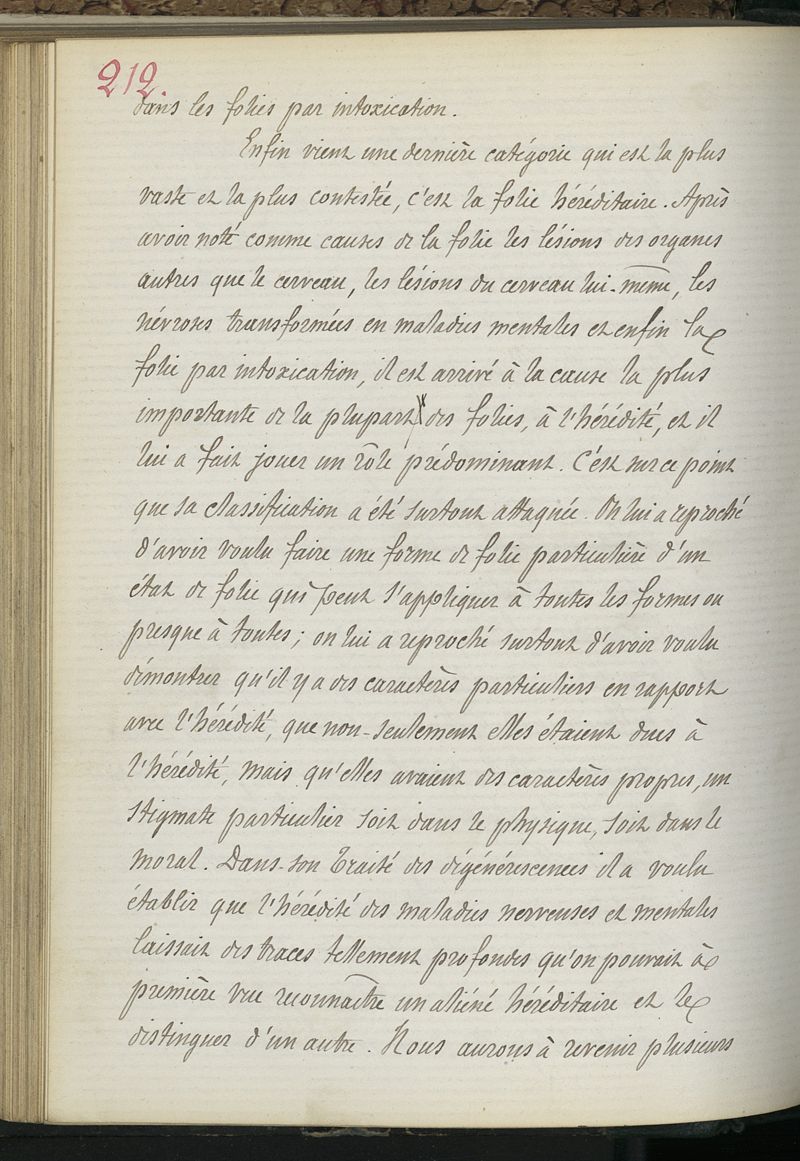 212.
dans les folies par intoxication.
Enfin vient une dernière catégorie qui est la plus
vaste et la plus contestée, c'est la folie héréditaire. Après
avoir noté comme causes de la folie les lésions des organes
autres que le cerveau, les lésions du cerveau lui-même, les
névroses transformées en maladies mentales et enfin la
folie par intoxication, il est arrivé à la cause la plus
importante de la plupart des folies, à l'hérédité, et il
lui a fait jouer un rôle prédominant. C'est sur ce point
que sa classification a été surtout attaquée. On lui a reproché
d'avoir voulu faire une forme de folie particulière d'un
état de folie qui peut s'appliquer à toutes les formes ou
presque à toutes ; on lui a reproché surtout d'avoir voulu
démontrer qu'il y a des caractères particuliers en rapport
avec l'hérédité, que non-seulement elles étaient dues à
l'hérédité, mais qu'elles avaient des caractères propres, un
stigmate particulier soit dans le physique, soit dans le
moral. Dans son Traité des dégénérescences il a voulu
établir que l'hérédité des maladies nerveuses et mentales
laissait des traces tellement profondes qu'on pouvait à
première vue reconnaître un aliéné héréditaire et le
distinguer d'un autre. Nous aurons à revenir plusieurs